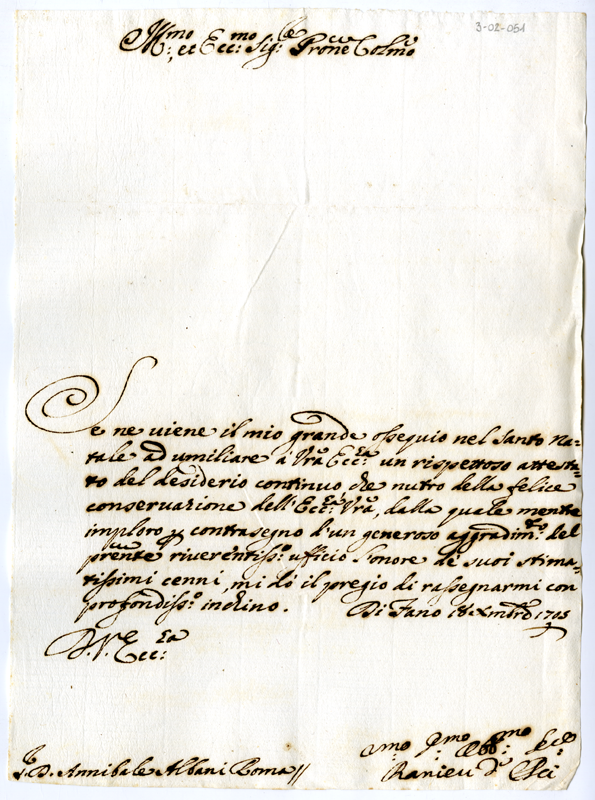 3-02-051
Ill.mo et Ecc.mo Sig.re Prone Colmo
Se ne uiene il mio grande ossequio nel Santo Na-
tale ad umiliare à Vrã Ecc.za un rispettoso attesta-
to del desiderio continuo che nutro della felice
conseruazione dell'Ecc.za Vrã, dalla quale mentre
imploro p contrasegno d'un generoso aggradim.to del
prẽnte riuerentiss.o ufficio l'onore de suoi stima-
tissimi cenni, mi dò il pregio di rassegnarmi con
profondiss.o inchino. Di Fano 18 Xmbre 1705
D. V. Ecc.za
S.r D. Annibale Albani Roma//
Ranieri